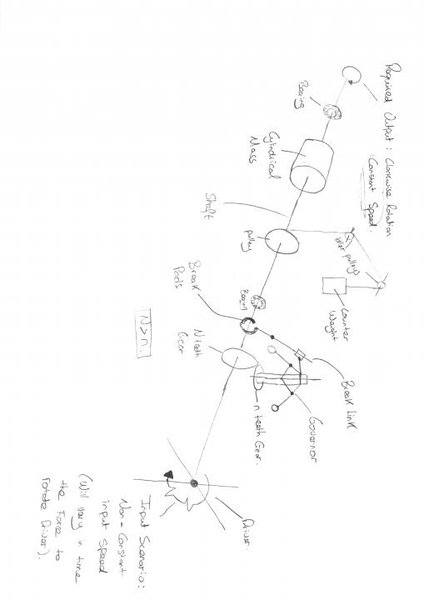 Required Output: Clockwise Rotation
Constant Speed.
Bearing
Cylindrical
Mass
Shaft
pulley
pulleys
Counter
Weight
Break
Pads
Bearing
N teeth
Gear
n teeth Gear.
Break Link
Governor
N>n
Driver
Input Scenario:
Non-Constant
input speed
(Will vary in time
the Force to
rotate Driver).